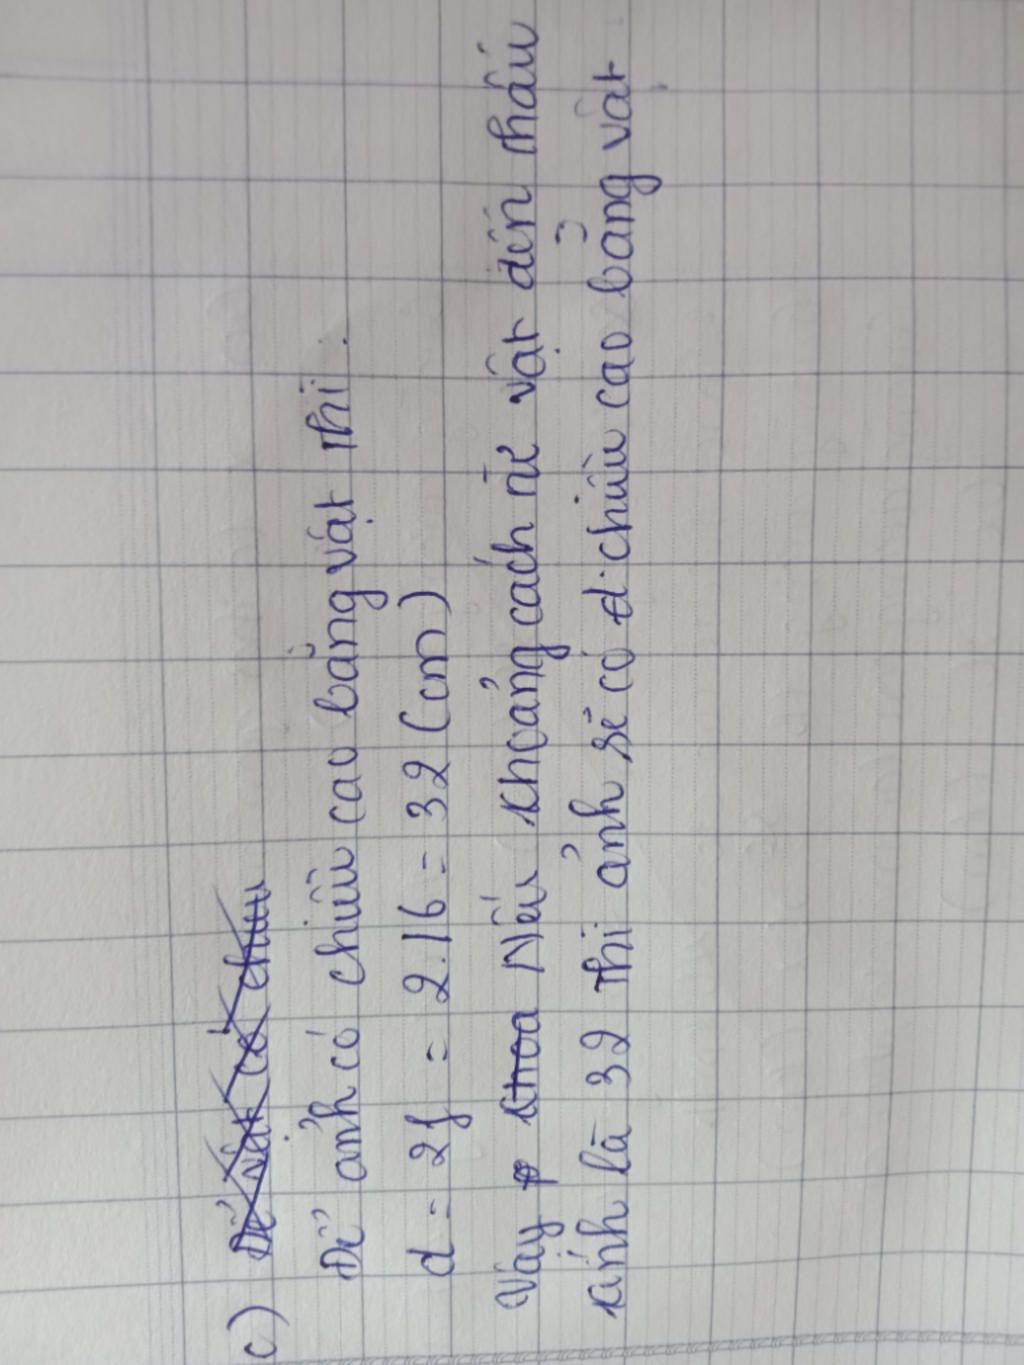 c)
Để ảnh có chiều cao bằng vật thì.
d = 2f = 2.16 = 32 (cm)
Vậy Nếu khoảng cách từ vật đến thấu
kính là 32 thì ảnh sẽ có chiều cao bằng vật.